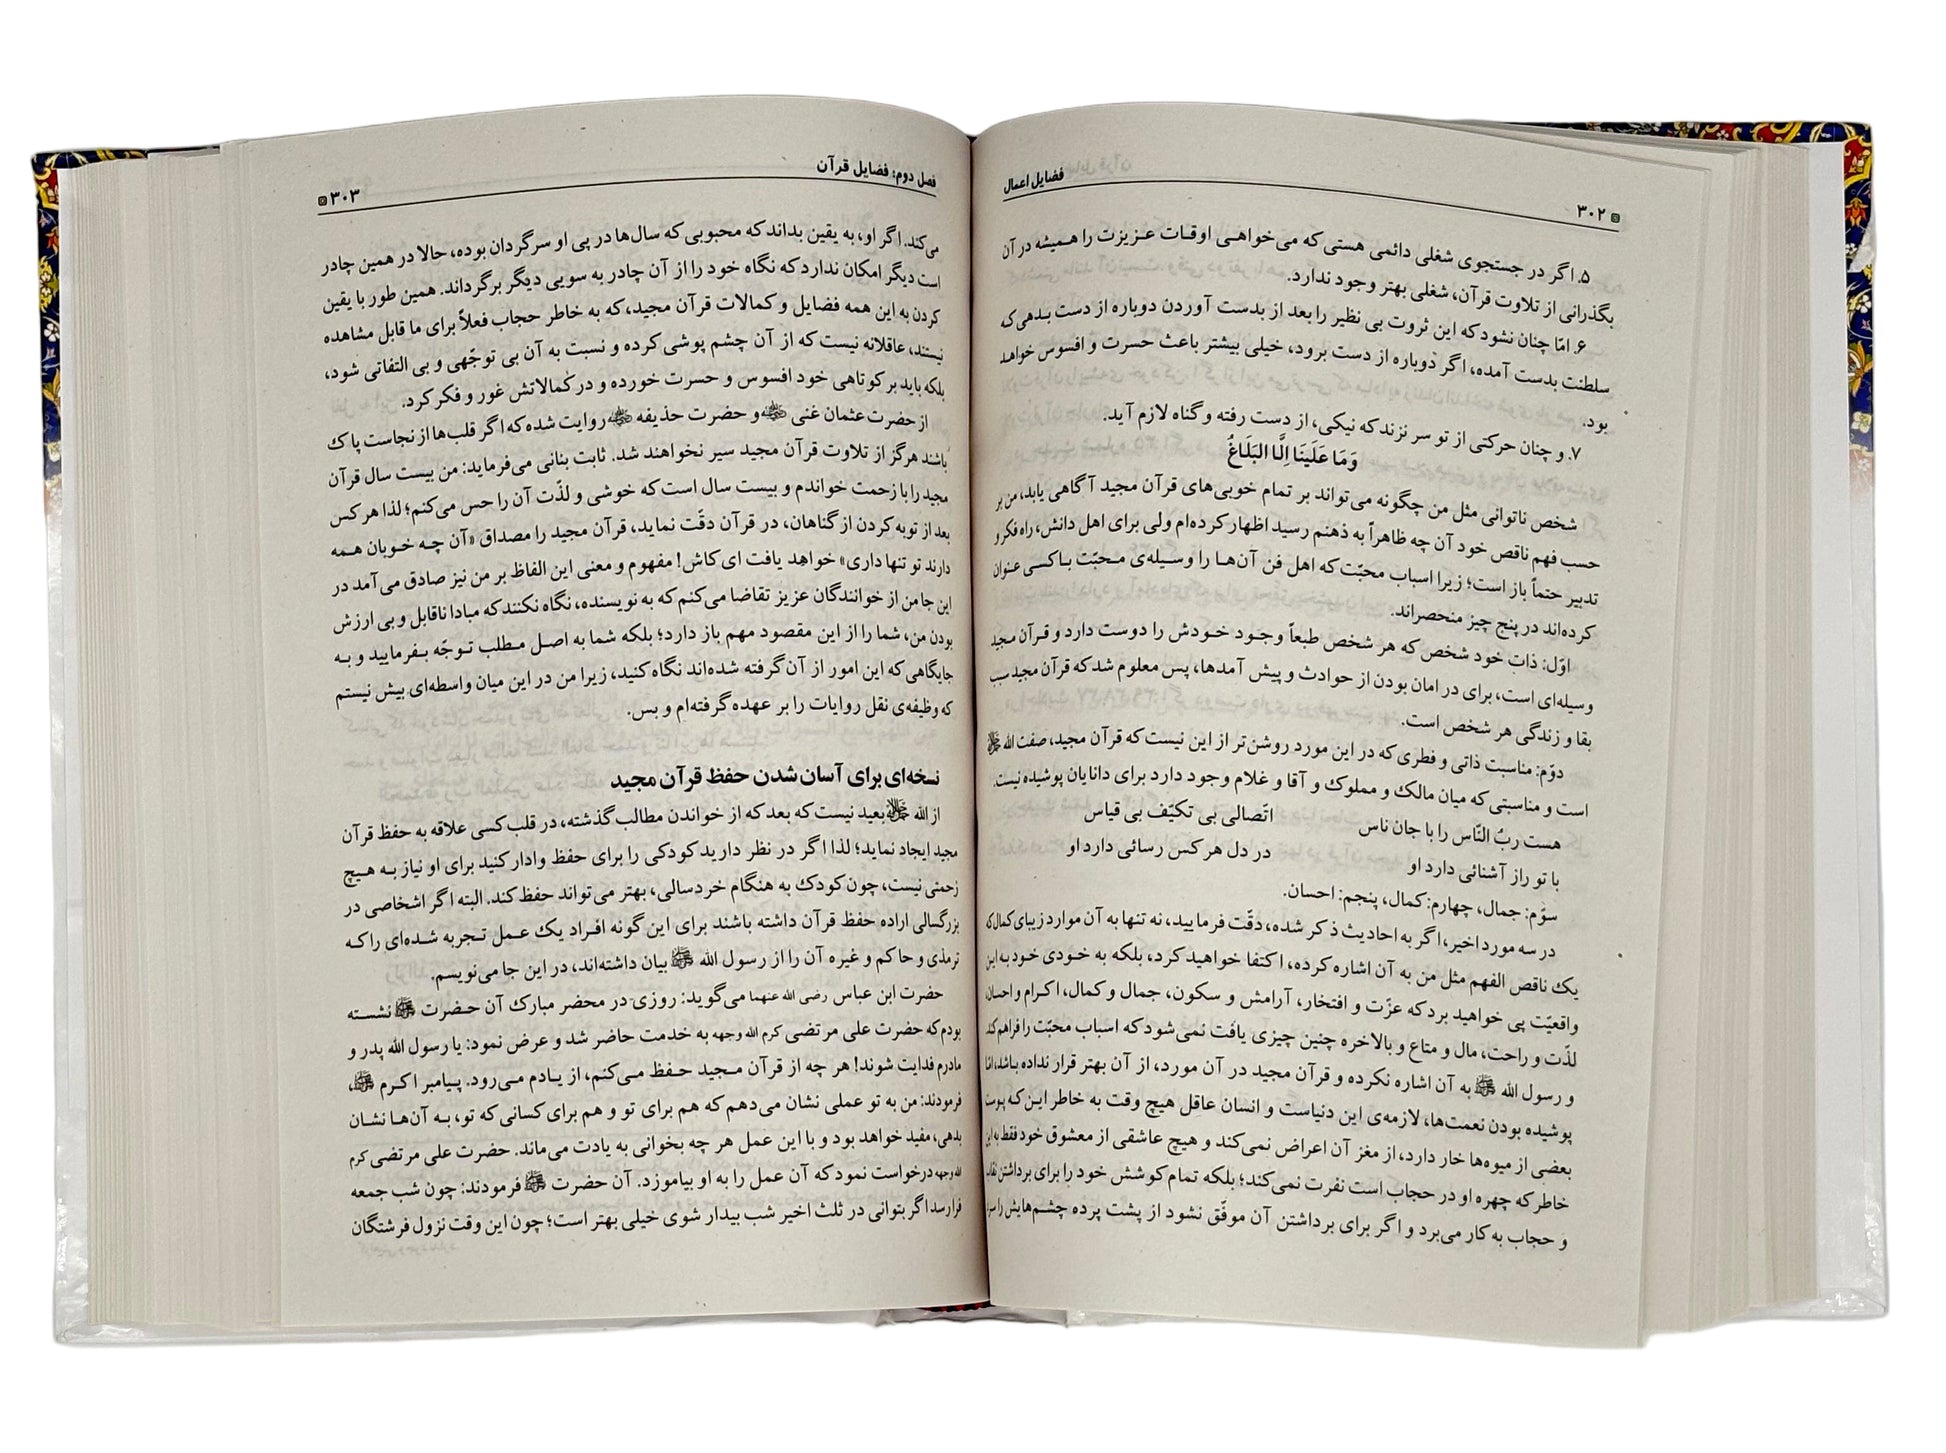 ۳۰۲
فضایل اعمال
۵. اگر در جستجوی شغلی دائمی هستی که می‌خواهی اوقات عزیزت را همیشه در آن
بگذرانی از تلاوت قرآن، شغلی بهتر وجود ندارد.
۶. امّا چنان نشود که این ثروت بی نظیر را بعد از بدست آوردن دوباره از دست بدهی که
سلطنت بدست آمده، اگر دوباره از دست برود، خیلی بیشتر باعث حسرت و افسوس خواهد
بود.
۷. و چنان حرکتی از تو سر نزند که نیکی، از دست رفته و گناه لازم آید.
وَمَا عَلَینَا اِلَّا البَلَاغُ
شخص ناتوانی مثل من چگونه می‌تواند بر تمام خوبی‌های قرآن مجید آگاهی یابد، من بر
حسب فهم ناقص خود آن چه ظاهراً به ذهنم رسید اظهار کرده‌ام ولی برای اهل دانش، راه فکر و
تدبیر حتماً باز است؛ زیرا اسباب محبّت که اهل فن آن‌ها را وسیله‌ی محبّت با کسی عنوان
کرده‌اند در پنج چیز منحصراند.
اوّل: ذات خود شخص که هر شخص طبعاً وجود خودش را دوست دارد و قرآن مجید
وسیله‌ای است، برای در امان بودن از حوادث و پیش آمدها، پس معلوم شد که قرآن مجید سبب
بقا و زندگی هر شخص است.
دوّم: مناسبت ذاتی و فطری که در این مورد روشن‌تر از این نیست که قرآن مجید، صفت الله ﷻ
است و مناسبتی که میان مالک و مملوک و آقا و غلام وجود دارد برای دانایان پوشیده نیست.
هست ربُ النّاس را با جان ناس اتّصالی بی تکیّف بی قیاس
با تو راز آشنائی دارد او در دل هر کس رسائی دارد او
سوّم: جمال، چهارم: کمال، پنجم: احسان.
در سه مورد اخیر، اگر به احادیث ذکر شده، دقّت فرمایید، نه تنها به آن موارد زیبای کمال که
یک ناقص الفهم مثل من به آن اشاره کرده، اکتفا خواهید کرد، بلکه به خودی خود به این
واقعیّت پی خواهید برد که عزّت و افتخار، آرامش و سکون، جمال و کمال، اکرام و احسان،
لذّت و راحت، مال و متاع و بالاخره چنین چیزی یافت نمی‌شود که اسباب محبّت را فراهم کند
و رسول الله ﷺ به آن اشاره نکرده و قرآن مجید در آن مورد، از آن بهتر قرار نداده باشد، امّا
پوشیده بودن نعمت‌ها، لازمه‌ی این دنیاست و انسان عاقل هیچ وقت به خاطر این‌که پوست
بعضی از میوه‌ها خار دارد، از مغز آن اعراض نمی‌کند و هیچ عاشقی از معشوق خود فقط به این
خاطر که چهره او در حجاب است نفرت نمی‌کند؛ بلکه تمام کوشش خود را برای برداشتن نقاب
و حجاب به کار می‌برد و اگر برای برداشتن آن موفّق نشود از پشت پرده چشم‌هایش را سرد
فصل دوم: فضایل قرآن
۳۰۳
می‌کند. اگر او، به یقین بداند که محبوبی که سال‌ها در پی او سرگردان بوده، حالا در همین چادر
است دیگر امکان ندارد که نگاه خود را از آن چادر به سویی دیگر برگرداند. همین طور با یقین
کردن به این همه فضایل و کمالات قرآن مجید، که به خاطر حجاب فعلاً برای ما قابل مشاهده
نیستند، عاقلانه نیست که از آن چشم پوشی کرده و نسبت به آن بی توجّهی و بی التفاتی شود،
بلکه باید بر کوتاهی خود افسوس و حسرت خورده و در کمالاتش غور و فکر کرد.
از حضرت عثمان غنی و حضرت حذیفه روایت شده که اگر قلب‌ها از نجاست پاک
باشند هرگز از تلاوت قرآن مجید سیر نخواهند شد. ثابت بنانی می‌فرماید: من بیست سال قرآن
مجید را با زحمت خواندم و بیست سال است که خوشی و لذّت آن را حس می‌کنم؛ لذا هر کس
بعد از توبه کردن از گناهان، در قرآن دقّت نماید، قرآن مجید را مصداق «آن چه خوبان همه
دارند تو تنها داری» خواهد یافت ای کاش! مفهوم و معنی این الفاظ بر من نیز صادق می‌آمد در
این جا من از خوانندگان عزیز تقاضا می‌کنم که به نویسنده، نگاه نکنند که مبادا ناقابل و بی ارزش
بودن من، شما را از این مقصود مهم باز دارد؛ بلکه شما به اصل مطلب توجّه بفرمایید و به
جایگاهی که این امور از آن گرفته شده‌اند نگاه کنید، زیرا من در این میان واسطه‌ای بیش نیستم
که وظیفه‌ی نقل روایات را بر عهده گرفته‌ام و بس.
نسخه‌ای برای آسان شدن حفظ قرآن مجید
از الله ﷻ بعید نیست که بعد که از خواندن مطالب گذشته، در قلب کسی علاقه به حفظ قرآن
مجید ایجاد نماید؛ لذا اگر در نظر دارید کودکی را برای حفظ وادار کنید برای او نیاز به هیچ
زحمتی نیست، چون کودک به هنگام خردسالی، بهتر می‌تواند حفظ کند. البته اگر اشخاصی در
بزرگسالی اراده حفظ قرآن داشته باشند برای این گونه افراد یک عمل تجربه شده‌ای را که
ترمذی و حاکم و غیره آن را از رسول الله ﷺ بیان داشته‌اند، در این جا می‌نویسم.
حضرت ابن عباس رضی الله عنهما می‌گوید: روزی در محضر مبارک آن حضرت ﷺ نشسته
بودم که حضرت علی مرتضی کرم الله وجهه به خدمت حاضر شد و عرض نمود: یا رسول الله پدر و
مادرم فدایت شوند! هر چه از قرآن مجید حفظ می‌کنم، از یادم می‌رود. پیامبر اکرم ﷺ،
فرمودند: من به تو عملی نشان می‌دهم که هم برای تو و هم برای کسانی که تو، به آن‌ها نشان
بدهی، مفید خواهد بود و با این عمل هر چه بخوانی به یادت می‌ماند. حضرت علی مرتضی کرم
الله وجهه درخواست نمود که آن عمل را به او بیاموزد. آن حضرت ﷺ فرمودند: چون شب جمعه
فرا رسد اگر بتوانی در ثلث اخیر شب بیدار شوی خیلی بهتر است؛ چون این وقت نزول فرشتگان